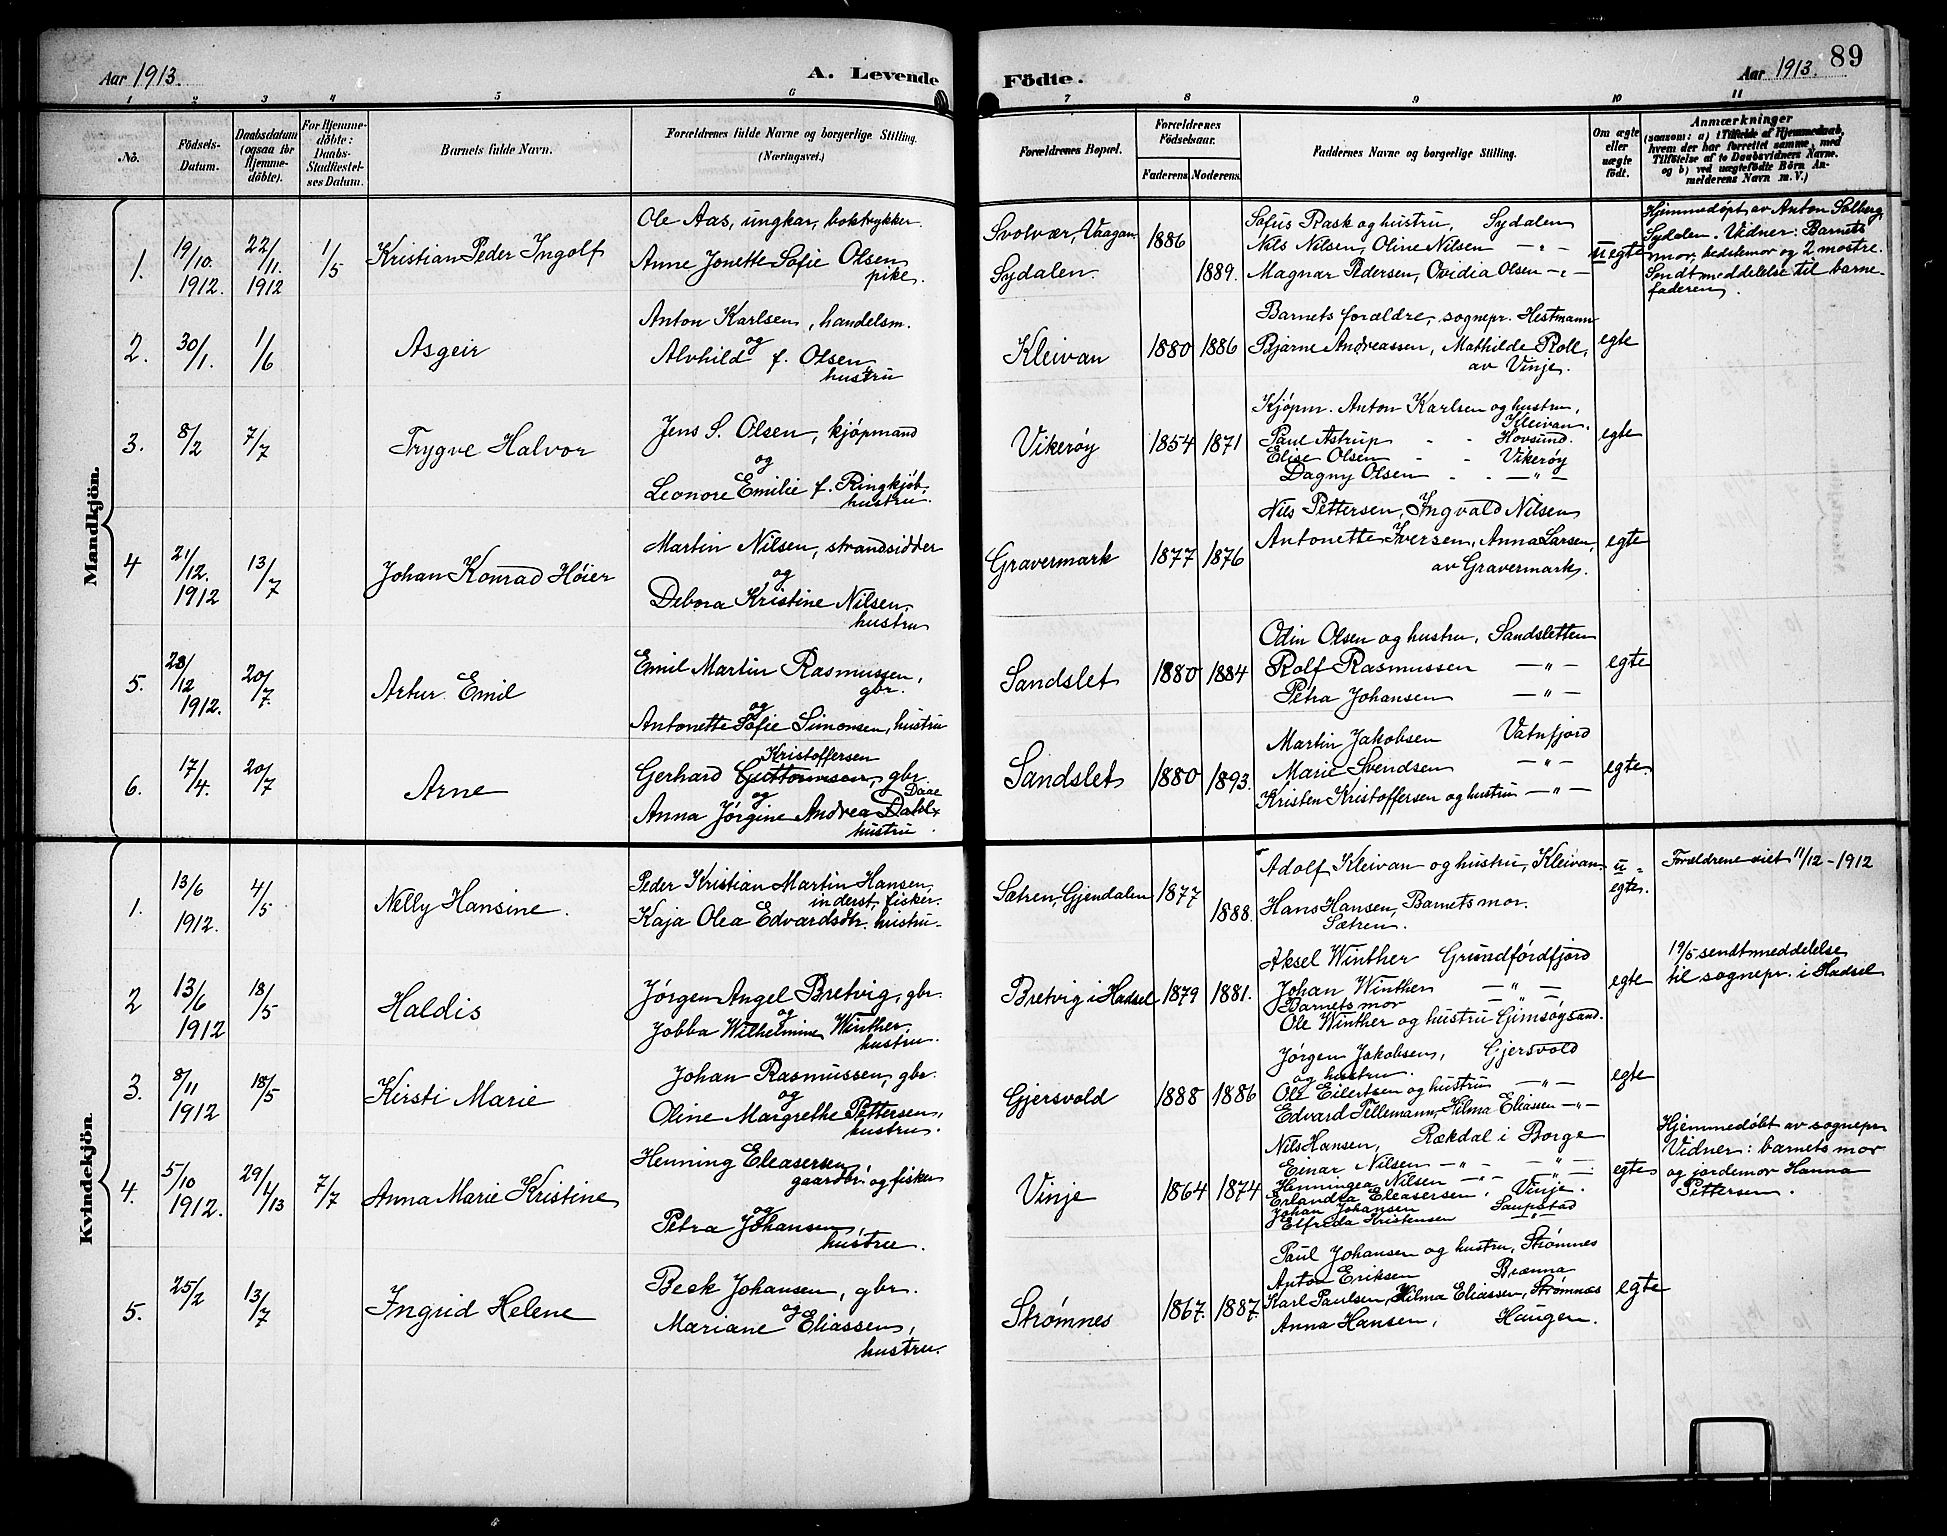 Aar 1913.
A. Levende
Födte.
Aar 1913.
89
1 2 3 4 5 6 7 8 9 10 11
No.
Födsels-
Datum.
Daabsdatum
(ogsaa for
Hjemme-
döbte).
For Hjemme-
döbte:
Daabs-
Stadfæstel-
ses Datum.
Barnets fulde Navn.
Forældrenes fulde Navne og borgerlige Stilling.
(Næringsvei.)
Forældrenes Bopæl.
Forældrenes
Födselsaar.
Faderens. Moderens.
Faddernes Navne og borgerlige Stilling.
Om ægte
eller
uægte
födt.
Anmærkninger
(saasom: a) i Tilfælde af Hjemmedaab,
hvem der har forrettet samme, med
Tilföielse af to Daabsvidners Navne.
og b) ved uægtefödte Börn An-
melderens Navn m. V.)
Mandkjön.
1.
19/10.
1912.
22/11.
1912
1/5
Kristian Peder Ingolf
Ole Aas, ungkar, boktrykker.
Anne Jonette Sofie Olsen
pike.
Svolvær, Vaagan
Sydalen.
1886
1889.
Sofus Rask og hustru, Sydalen
Nils Nilsen, Oline Nilsen — " —
Magnar Pedersen, Ovidia Olsen — " —
uegte
Hjemmedøpt av Anton Solberg,
Sydalen. Vidner: Barnets
mor, bedstemor og 2 mostre.
Sendt meddelelse til barne-
faderen.
2.
30/1.
1/6
Asgeir
Anton Karlsen, handelsm.
og
Alvhild f. Olsen,
hustru
Kleivan
1880
1886
Barnets forældre, sognepr. Hestmann
Bjarne Andreassen, Mathilde Roll,
av Vinje.
egte
3.
8/2
7/7
Trygve Halvor
Jens S. Olsen, kjøpmand
og
Leonore Emilie f. Ringkjøb,
hustru.
Vikerøy
1854
1871
Kjøpm. Anton Karlsen og hustru,
Kleivan.
Paul Astrup - - Hovsund.
Elise Olsen - - Vikerøy
Dagny Olsen - - — " —
egte
4
21/12.
1912
13/7
Johan Konrad Høier
Martin Nilsen, strandsidder
og
Debora Kristine Nilsen,
hustru
Gravermark
1877
1876
Nils Pettersen, Ingvald Nilsen
Antonette Iversen, Anna Larsen,
av Gravermark.
egte
5.
23/12
1912.
20/7.
Artur Emil
Emil Martin Rasmussen,
gbr.
og
Antonette Sofie Simonsen, hustru
Sandslet
1880
1884
Odin Olsen og hustru, Sandsletten
Rolf Rasmussen — " —
Petra Johansen — " —
egte
6.
17/4.
20/7
Arne
Kristoffersen
Gerhard Guttormsen, gbr.
og Daae
Anna Jørgine Andrea Dahl
hustru.
Sandslet
1880
1893.
Martin Jakobsen Vatnfjord
Marie Svendsen — " —
Kristen Kristoffersen og hustru — " —
egte.
Kvindekjön.
1.
13/6
1912.
4/5
Nelly Hansine.
Peder Kristian Martin Hansen,
inderst, fisker.
Kaja Olea Edvardsdtr. hustru.
Sætren, Gjendalen
1877
1888.
Adolf Kleivan og hustru, Kleivan.
Hans Hansen, Barnets mor.
Sætren.
u-
egte.
Forældrene viet 11/12-1912
2
13/6
1912
18/5
Haldis
Jørgen Angel Bretvig, gbr.
og
Jobba Wilhelmine Winther,
hustru.
Bretvig i Hadsel
1879
1881.
Aksel Winther Grundfordfjord
Johan Winther — " —
Barnets mor — " —
Ole Winther og hustru Gimsøysand.
egte
19/5 sendt meddelelse
til sognepr. i Hadsel
3.
8/11
1912
18/5
Kirsti Marie
Johan Rasmussen, gbr.
og
Oline Margrethe Pettersen,
hustru.
Gjersvold
1888
1886
Jørgen Jakobsen, Gjersvold
og hustru.
Ole Eilertsen og hustru — " —
Edvard Tellemann, Hilma Eliassen — " —
egte
4.
5/10
1912.
29/4/13
7/7
Anna Marie Kristine
Henning Eleasersen
gaardbr. og fisker
og
Petra Johansen,
hustru.
Vinje
1864
1874
Nils Hansen, Rækdal i Borge
Einar Nilsen — " — — " —
Henningea Nilsen — " — — " —
Erlandsa Eleasersen, Vinje.
Johan Johansen Saupstad
Elfrida Kristensen — " —
egte
Hjemmedøbt av sognepr
Vidner: barnets mor
og jordemor Hanna
Pettersen.
5.
25/2
13/7
Ingrid Helene
Beek Johansen, gbr.
og
Mariane Eliassen,
hustru.
Strømnes
1867.
1887.
Paul Johansen og hustru, Strømnes
Anton Eriksen Brenna
Karl Paulsen, Hilma Eliassen, Strømnes
Anna Hansen, Haugen.
egte